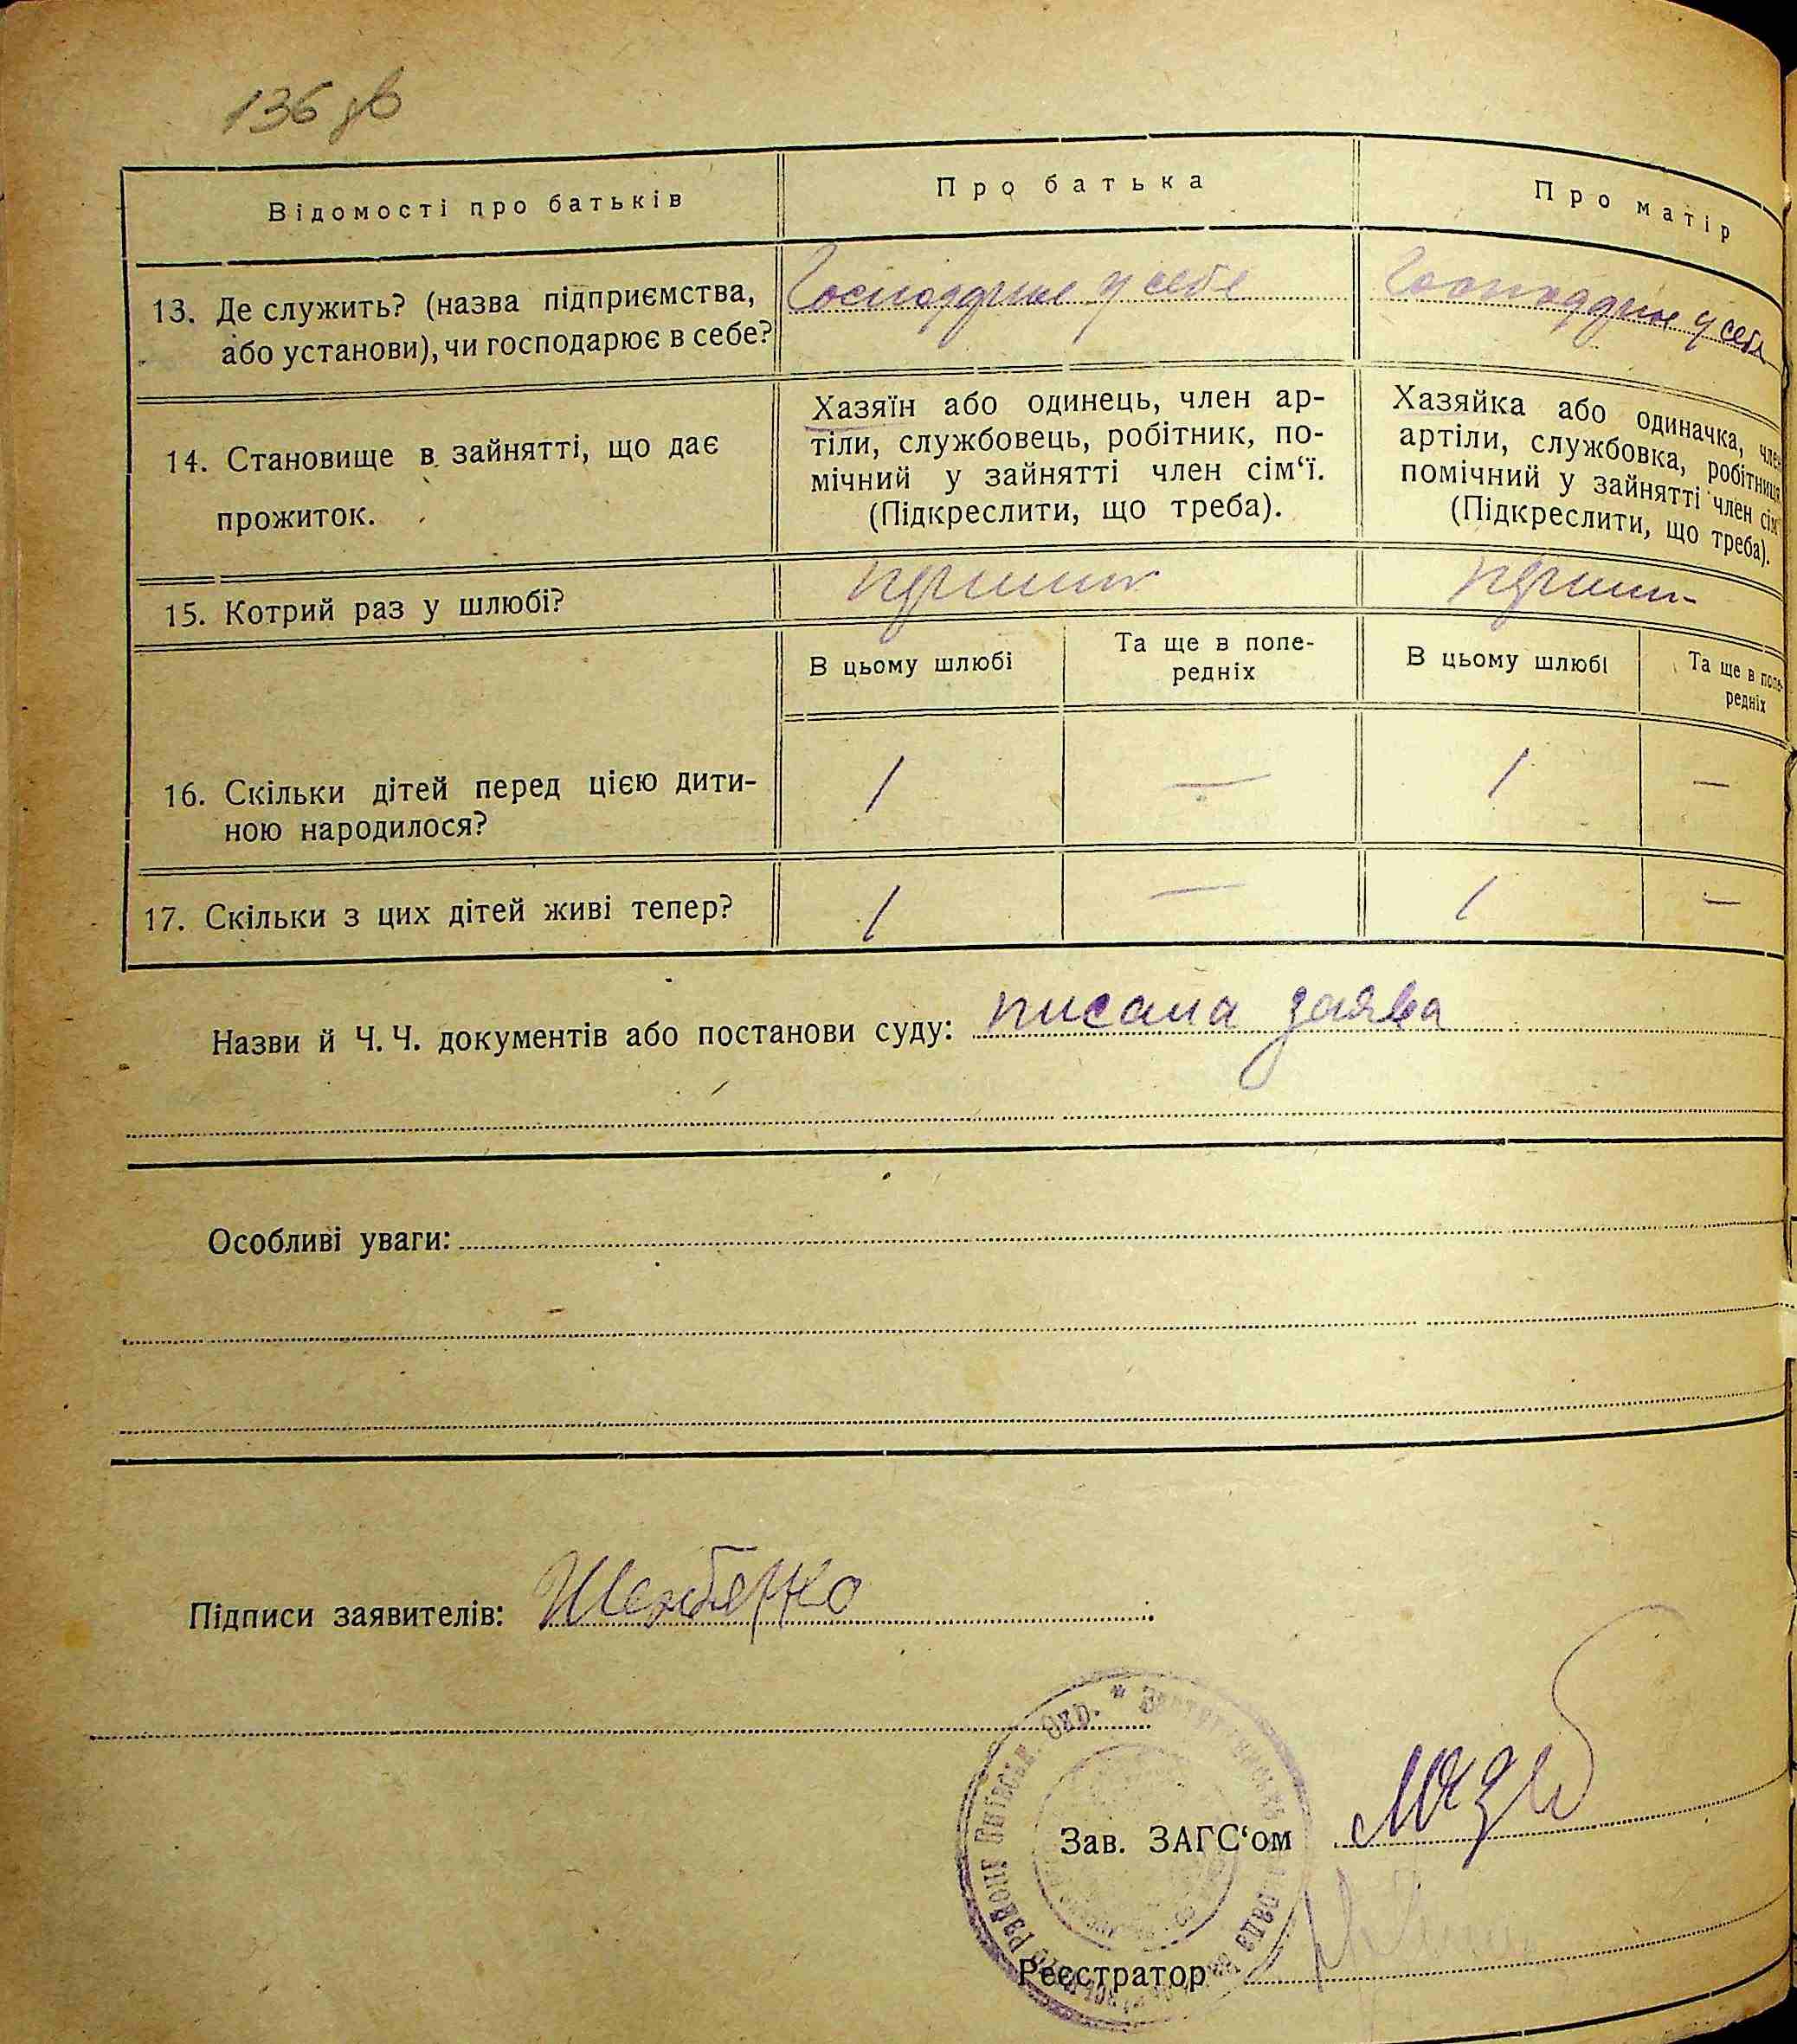 136 зв
Відомості про батьків
Про батька
Про матір
13. Де служить? (назва підприємства,
або установи), чи господарює в себе?
Господрює у себе
Господдрює у себе
14. Становище в зайнятті, що дає
прожиток.
Хазяїн або одинець, член ар-
тіли, службовець, робітник, по-
мічний у зайнятті член сім‘ї.
(Підкреслити, що треба).
Хазяйка або одиначка, член
артіли, службовка, робітниця
помічний у зайнятті член сім‘
(Підкреслити, що треба).
15. Котрий раз у шлюбі?
В цьому шлюбі
Та ще в попе-
редніх
В цьому шлюбі
Та ще в попе-
редніх
16. Скільки дітей перед цією дити-
ною народилося?
1 — 1 —
17. Скільки з цих дітей живі тепер?
1 — 1 —
Назви й Ч. Ч. документів або постанови суду: писана заява
Особливі уваги:
Підписи заявителів:
Зав. ЗАГС‘ом
Реєстратор